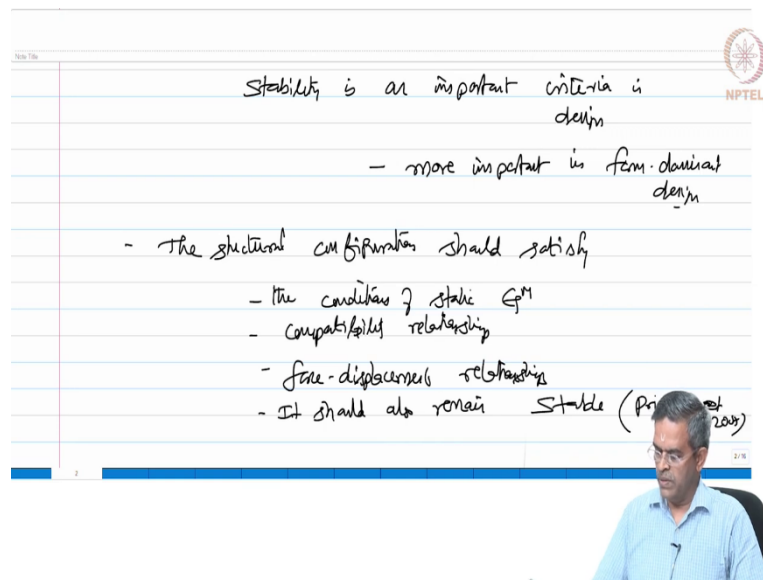 Note Title
NPTEL
Stability is an important criteria in
design
- more important in form-dominant
design
- The structural configuration should satisfy
- the conditions of static Eqm
- compatibility relationship
- force-displacement relationships
- It should also remain stable (
2018)
2/16
2